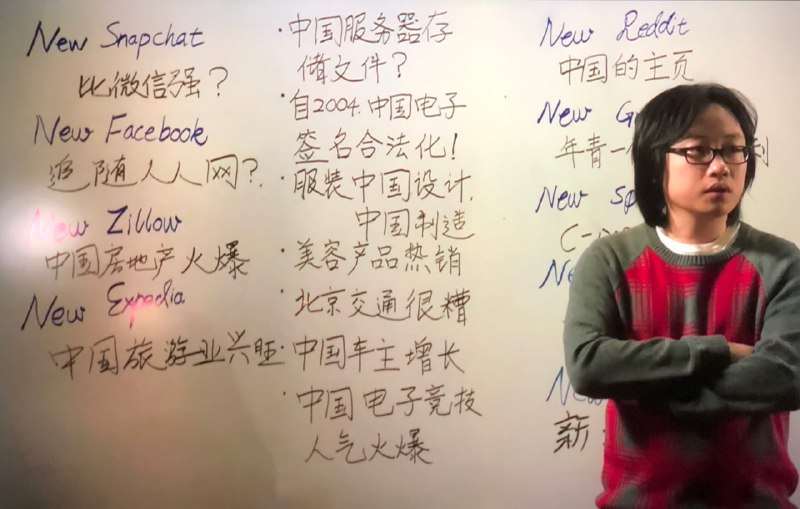 New Snapchat
比微信强?
New Facebook
追随人人网?
New Zillow
中国房地产火爆
New Expedia
中国旅游业兴旺
·中国服务器存
储文件?
·自2004.中国电子
签名合法化!
·服装中国设计,
中国制造
·美容产品热销
·北京交通很糟
·中国车主增长
·中国电子竞技
人气火爆
New Reddit
中国的主页
New
年青一
New
C-
新